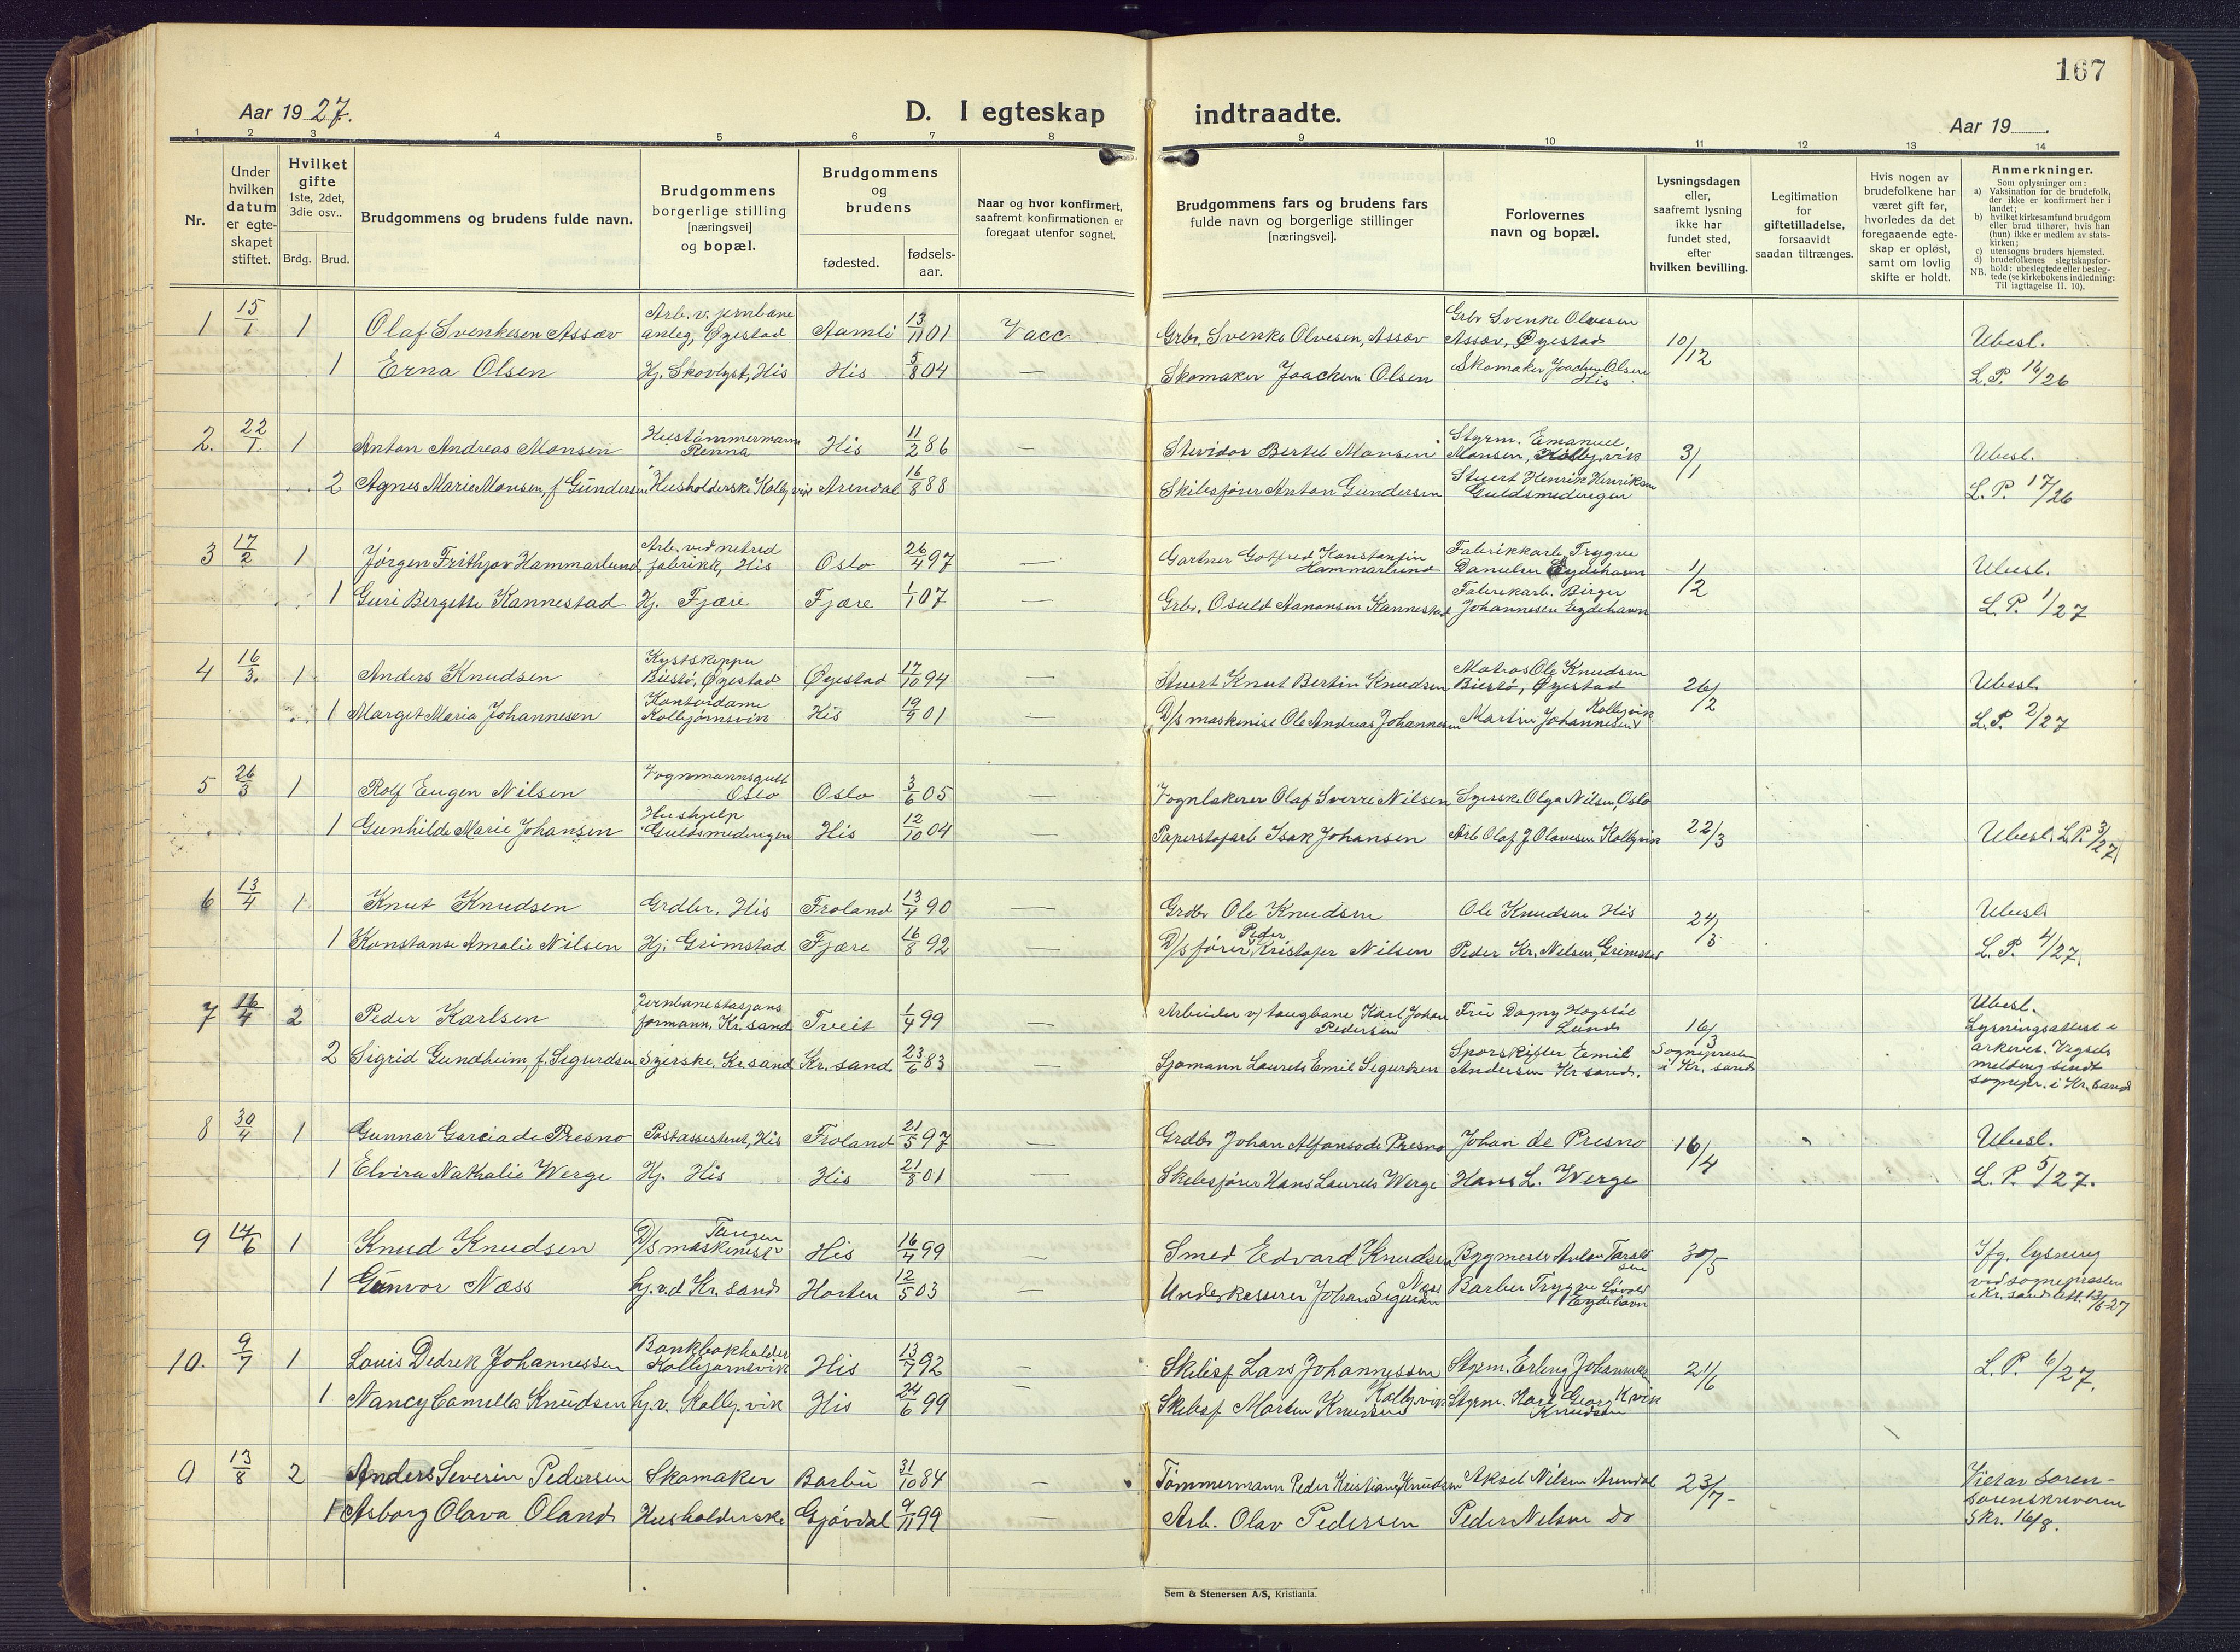 167
Aar 19 27.
D. I egteskap indtraadte.
Aar 19 .
1 2 3 4 5 6 7 8 9 10 11 12 13 14
Nr.
Under hvilken datum er egte-skapet stiftet.
Hvilket gifte 1ste, 2det, 3die osv..
Brdg. Brud.
Brudgommens og brudens fulde navn.
Brudgommens borgerlige stilling [næringsvei] og bopæl.
Brudgommens og brudens
fødested. fødsels-aar.
Naar og hvor konfirmert, saafremt konfirmationen er foregaat utenfor sognet.
Brudgommens fars og brudens fars fulde navn og borgerlige stillinger [næringsvei].
Forlovernes navn og bopæl.
Lysningsdagen eller, saafremt lysning ikke har fundet sted, efter hvilken bevilling.
Legitimation for giftetilladelse, forsaavidt saadan tiltrænges.
Hvis nogen av brudefolkene har været gift før, hvorledes da det foregaaende egte-skap er opløst, samt om lovlig skifte er holdt.
Anmerkninger.
Som oplysninger om:
a) Vaksination for de brudefolk, der ikke er konfirmert her i landet;
b) hvilket kirkesamfund brudgom eller brud tilhører, hvis han (hun) ikke er medlem av stats-kirken;
c) utensogns bruders hjemsted.
d) brudefolkenes slegtskapsfor-hold: ubeslegtede eller besleg-tede (se kirkebokens indledning: NB. Til iagttagelse II. 10).
1 15/1 1 Olaf Svenkesen Assav Arb. v. jernbane anleg, Øyestad Aamli 13/11 01 Vacc Grbr. Svenke Olvesen, Assav Grbr Svenke Olvesen Assav, Øyestad 10/12 Ubesl.
1 Erna Olsen Hj. Skovlyst, His His 5/8 04 — Skomaker Joachem Olsen Skomaker Joachem Olsen His L.P. 16/26
2. 22/1. 1 Anton Andreas Monsen Hustømmermann Renna His 11/2 86 — Stevidor Bertel Monsen Styrm. Emanuel Monsen, Kolbj.vik 3/1 Ubesl.
2 Agnes Marie Monsen, f Gundersen Husholderske Kolbj vik Arendal 16/8 88 Skibsfører Anton Gundersen Stuert Henrik Henriksen Guldsmedengen L.P. 17/26
3 17/2 1 Jørgen Frithjov Hammarlund Arb. ved netred fabrikk, His Oslo 26/4 97 — Gartner Gotfred Konstantin Hammarlund Fabrikkarb. Trygve Danielsen Eydehavn 1/2 Ubesl.
1 Guri Bergitte Kannestad Hj. Fjære Fjære 1/1 07 — Grbr. Osuld Aanonsen Kannestad Fabrikarb. Birger Johannesen Eydehavn L.P. 1/27
4 16/3. 1 Anders Knudsen Kystskipper Biestø, Øyestad Øyestad 17/10 94 — Stuert Knut Bertin Knudsen Matros Ole Knudsen Biestø, Øyestad 26/2 Ubesl.
1 Margit Maria Johannesen Kontordame Kolbjørnsvik His 19/9 01 — D/s maskinist Ole Andreas Johannesen Martin Johannesen Kolbjvik L.P. 2/27
5 26/3 1 Rolf Eugen Nilsen Vognmannsgutt Oslo Oslo 3/6 05 — Vognlakerer Olaf Sverre Nilsen Syerske Olga Nilsen, Oslo
1 Gunhilde Marie Johansen Hushjelp Guldsmedengen His 12/10 04 — Paperstofarb Isak Johansen Arb Olaf J Olavesen Kolbjvik 22/3 Ubesl. L.P. 3/27
6 13/4 1 Knut Knudsen Grdbr. His Froland 13/4 90 — Grdbr Ole Knudsen Ole Knudsen His 24/3 Ubesl
1 Konstanse Amalie Nilsen Hj. Grimstad Fjære 16/8 92 — D/s fører Peder Kristofer Nilsen Peder Kr. Nilsen, Grimstad L.P. 4/27.
7 16/4 2 Peder Karlsen Jernbanestasjons formann, Kr.sand Tveit 1/4 99 — Arbeider v/ taugbane Karl Johan Pedersen Fru Dagny Lund 16/3 Ubesl.
2 Sigrid Gundheim, f. Sigurdsen Syerske, Kr.sand Kr.sand 23/6 83 — Sjømann Laurets Emil Sigurdsen Sporskifter Emil Andersen Kr sand. Sognepresten i Kr. sand Lysningsattest i arkivet. Vigsels melding sendt sognepr. i Kr.sand
8 30/4 1 Gunnar Garcia de Presno Postassistent, His Froland 21/5 97 — Grdbr Johan Alfonso de Presno Johan de Presno 16/4 Ubesl.
1 Elvira Nathalie Werge Hj. His His 21/8 01 — Skibsfører Hans Laurits Werge Hans L. Werge L.P. 5/27.
9 14/6 1 Knud Knudsen D/s maskinist Tangen His 16/4 99 — Smed Edvard Knudsen Bygmester Anton Taraldsen 30/5 Ifg. lysning
1 Gunvor Næss hj.v.d Kr.sand Horten 12/5 03 — Underkasserer Johan Sigurden Næss Barber Trygve Eydehavn ved sognepresten i Kr. sand att. 13/6-27
10. 9/7 1 Louis Dedrek Johannessen Bankbokholder Kolbjørnsvik His 13/7 92 — Skibsf Lars Johannessen Styrm. Erling Johannessen 21/6 L.P. 6/27.
1 Nancy Camilla Knudsen hj.v. Kolbj.vik His 24/6 99 — Skibsf Morten Knudsen Kolbjvik Styrm. Karl Georg Knudsen K.vik
0 13/8 2 Anders Severin Pedersen Skomaker Barbu 31/10 84 — Tømmermann Peder Kristian Knudsen Aksel Nilsen Arendal 23/7- Vietav soren-
1 Asborg Olava Oland Husholderske Gjøvdal 9/11 99 — Arb. Olav Pedersen Peder Nilsen Do sorenskriveren skr. 16/8.
Sem & Stenersen A/S, Kristiania.